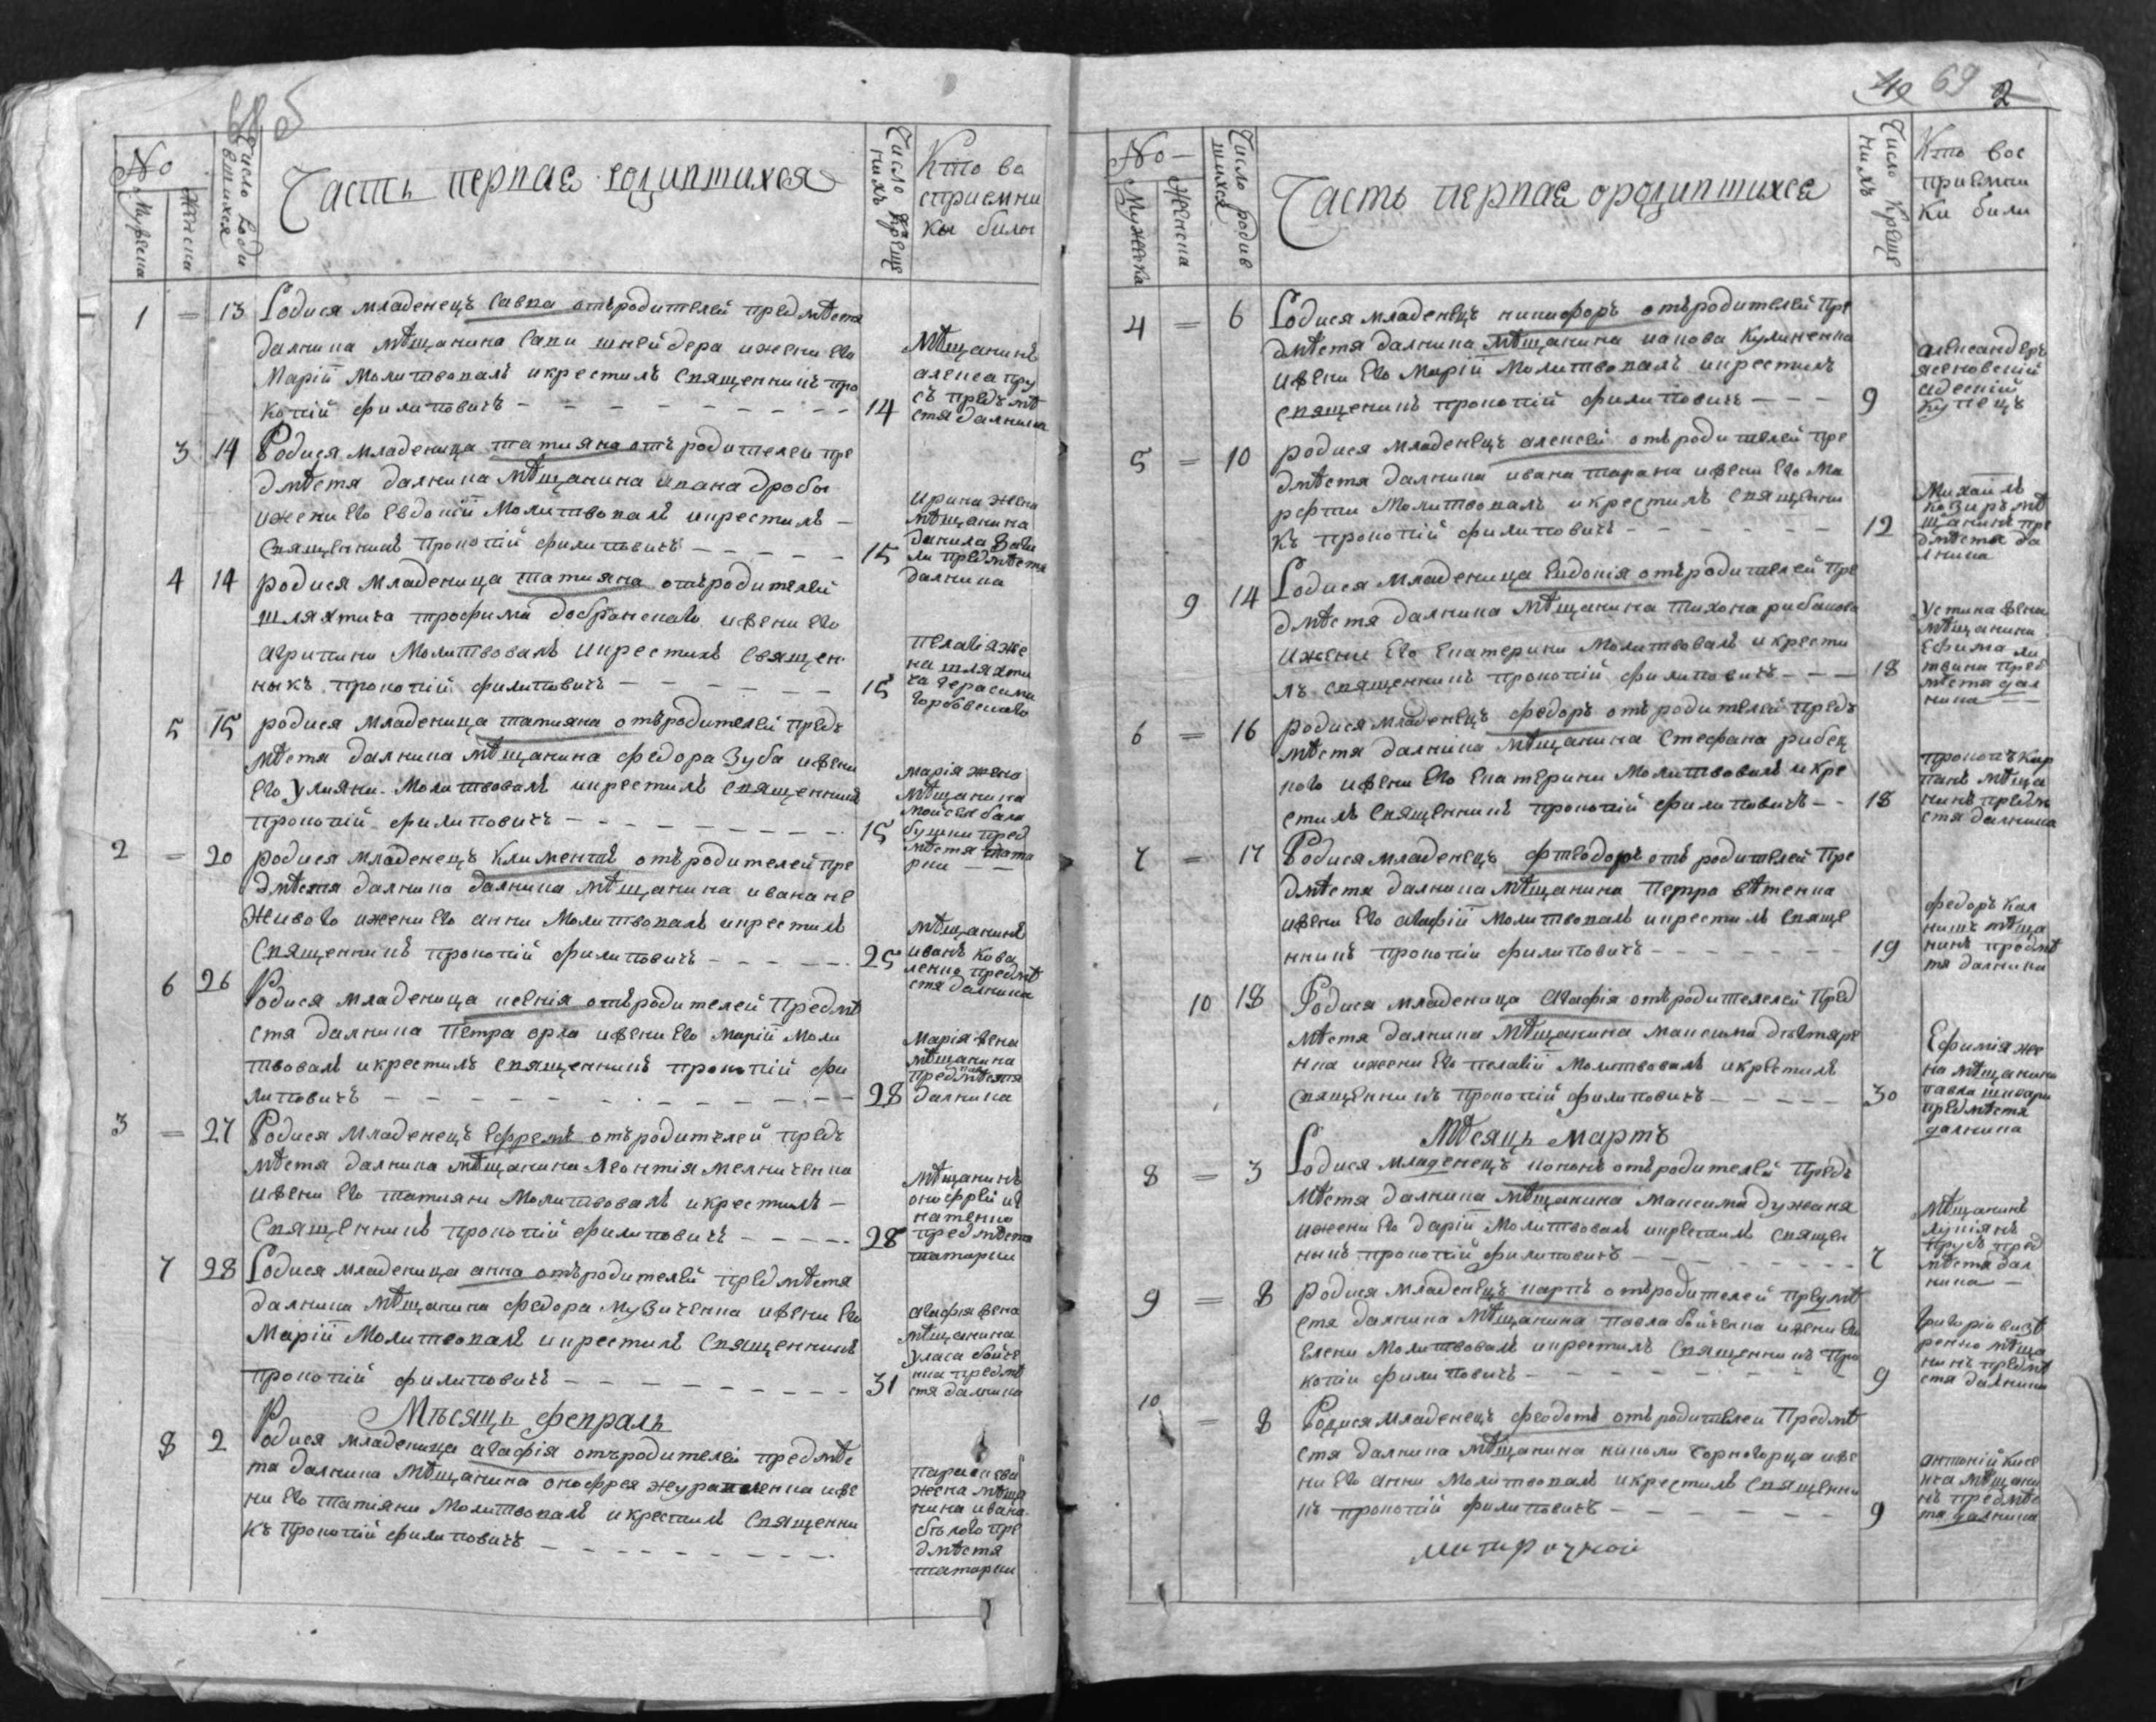 68 об
№
Мужеска
Женска
Число роди
вшихся
Часть первая родившихся
Число креще
нихъ
Кто во
сприемни
ки были
1 = 13 Родися младенецъ Савва отъ родителей предмѣстя
далника мѣщанина Сави шнейдера и жени его
Марій Молитвовалъ и крестилъ священникъ про
копій филиповичъ 14
Мѣщанинъ
алекса пру
съ предмѣ
стя далника
3 14 Родися младеница татияна отъ родителей пре
дмѣстя далника мѣщанина ивана дробы
и жени его Евдокій Молитвовалъ и крестилъ
священникъ прокопій филиповичъ 15
Ирина жена
мѣщанина
данила
предмѣстя
далника
4 14 родися младеница татияна отъ родителей
шляхтича трофима добранскаго и жени его
агрипини Молитвовалъ и крестилъ священ
никъ прокопій филиповичъ 15
пелагія же
на шляхти
ча герасима
горбовскаго
5 15 родися младеница татияна отъ родителей предъ
мѣстя далника мѣщанина федора Зуба и жени
его улияни Молитвовалъ и крестилъ священникъ
прокопій филиповичъ 15
Марія жена
мѣщанина
Мойсея бала
бушки пред
мѣстя тата
рки
2 = 20 родися младенецъ климентъ отъ родителей пре
дмѣстя далника далника мѣщанина ивана не
живого и жени его анни Молитвовалъ и крестилъ
священникъ прокопій филиповичъ 25
мѣщанинъ
иванъ кова
ленко предмѣ
стя далника
6 26 Родися младеница ксенія отъ родителей предмѣ
стя далника петра орла и жени его Марій Моли
твовалъ и крестилъ священникъ прокопій фи
липовичъ 28
Марія жена
мѣщанина
предмѣстя
далника
3 = 27 Родися младенецъ Ефремъ отъ родителей предъ
мѣстя далника мѣщанина Леонтія мелниченка
и жени его татияни Молитвовалъ и крестилъ
священникъ прокопій филиповичъ 28
Мѣщанинъ
онофрей иг
натенко
предмѣстя
татарки
7 28 Родися младеница анна отъ родителей предмѣстя
далника мѣщанина федора музиченка и жени его
Марій Молитвовалъ и крестилъ священникъ
прокопій филиповичъ 31
агафія жена
мѣщанина
уласа бойче
нка предмѣ
стя далника
Мѣсяцъ февраль
8 2 Родися младеница агафія отъ родителей предмѣс
тя далника мѣщанина онофрея журавленка и же
ни его татияни Молитвовалъ и крестилъ священни
къ прокопій филиповичъ
параскева
жена мѣща
нина ивана
бѣлого пре
дмѣстя
татарки
69 2
№
Мужеска
Женска
Число родив
шихся
Часть первая о родившихся
Число креще
нихъ
Кто вос
приемни
ки били
4 = 6 Родися младенецъ никифоръ отъ родителей пре
дмѣстя далника мѣщанина якова кулиненка
и жени его Марій Молитвовалъ и крестилъ
священикъ прокопій филиповичъ 9
александеръ
ясновский
адеский
купецъ
5 = 10 родися младенецъ алексей отъ родителей пре
дмѣстя далника ивана тарана и жени его Ма
рфти Молитвовалъ и крестилъ священни
къ прокопій филиповичъ 12
Михаилъ
козиръ мѣ
щанинъ пре
дмѣстя да
лника
9 14 Родися младеница Евдокія отъ родителей пре
дмѣстя далника мѣщанина тихона рибакова
и жени его Екатерини Молитвовалъ и крести
лъ священникъ прокопій филиповичъ 18
Устина жена
мѣщанина
Ефима ли
твина пред
мѣстя дал
ника
6 = 16 родися младенецъ федоръ отъ родителей предъ
мѣстя далника мѣщанина Стефана рибец
кого и жени его Екатерини Молитвовалъ и кре
стилъ священникъ прокопій филиповичъ 18
прокопъ кир
панъ мѣща
нинъ предмѣ
стя далника
7 = 17 Родися младенецъ фтеодоръ отъ родителей пре
дмѣстя далника мѣщанина Петра вѣтенка
и жени его агафій Молитвовалъ и крестилъ свяще
нникъ прокопій филиповичъ 19
федоръ кал
никъ мѣща
нинъ предмѣ
тя далника
10 18 Родися младеница агафія отъ родителелей пред
мѣстя далника мѣщанина максима дѣхтяре
нка и жени его пелагій Молитвовалъ и крестилъ
священникъ прокопій филиповичъ 30
Ефимія же
на мѣщанина
павла шкоари
предмѣстя
далника
Мѣсяцъ Мартъ
8 = 3 Родися младенецъ кононъ отъ родителей предъ
мѣстя далника мѣщанина максима дужака
и жени его дарій Молитвовалъ и крестилъ священ
никъ прокопій филиповичъ 7
Мѣщанинъ
лукіянъ
прусъ пред
мѣстя дал
ника
9 = 8 родися младенецъ карпъ отъ родителей предмѣ
стя далника мѣщанина павла бойченка и жени его
Елени Молитвовалъ и крестилъ священникъ про
копій филиповичъ 9
мѣща
нинъ предмѣ
стя далника
10 = 8 Родися младенецъ феодотъ отъ родителей предмѣ
стя далника мѣщанина николи чорногорца и же
ни его анни Молитвовалъ и крестилъ священни
къ прокопій филиповичъ 9
антоній кисе
нко мѣщани
нъ предмѣс
тя далника